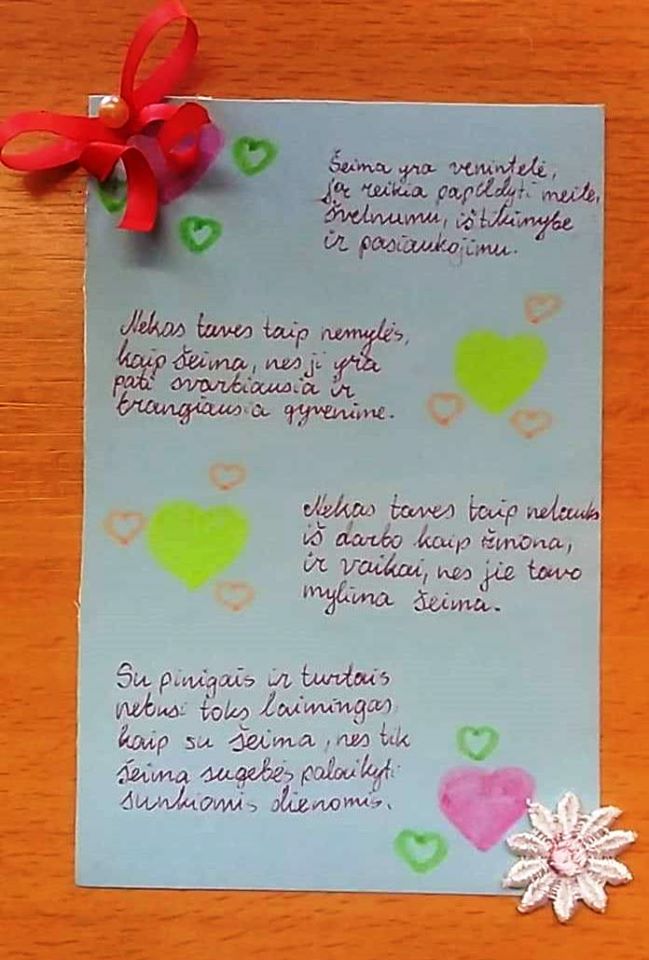 Šeima yra venintelė,
ją reikia papildyti meile,
švelnumu, ištikimybe
ir pasiaukojimu.
Nekas taves taip nemylės,
kaip šeima, nes ji yra
pati svarbiausia ir
brangiausia gyvenime.
Nekas taves taip nelauks
iš darbo kaip žmona,
ir vaikai, nes jie tavo
mylima šeima.
Su pinigais ir turtais
nebusi toks laimingas,
kaip su šeima, nes tik
šeima sugebės palaikyti
sunkiomis dienomis.